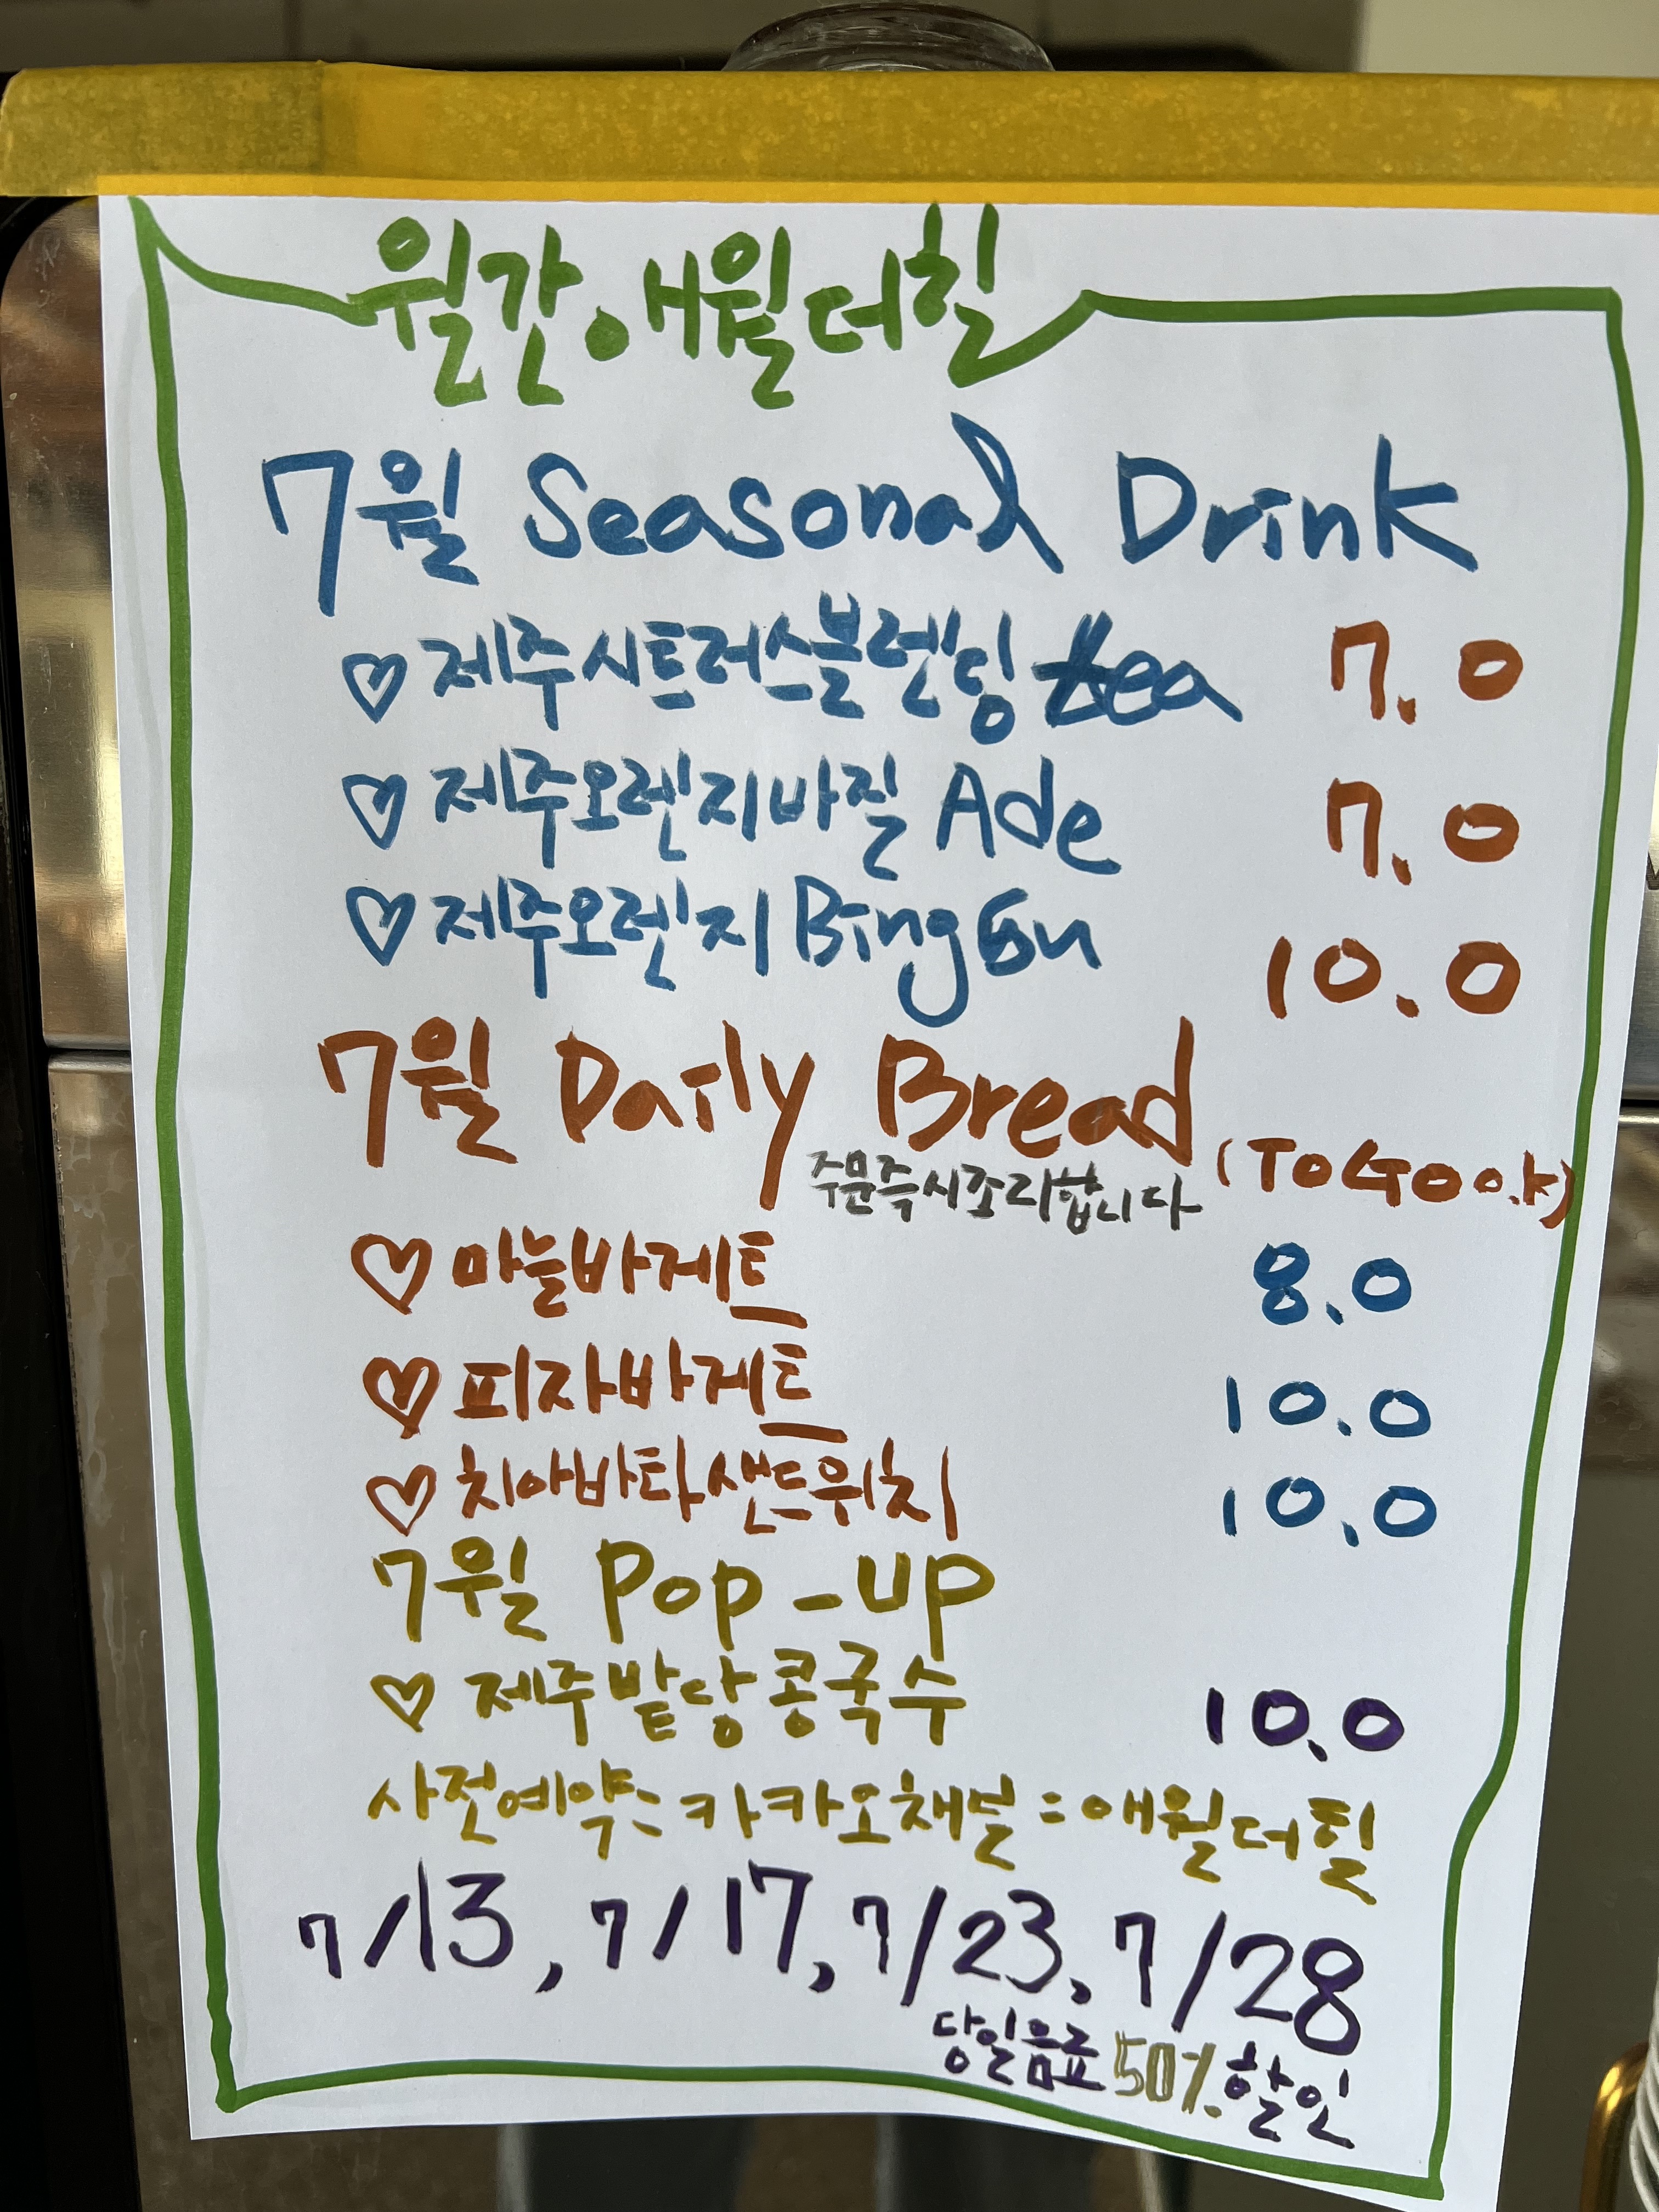 월간.애월더힐
7월 Seasonal Drink
♡제주시트러스블렌딩 tea 7.0
♡제주오렌지바질 Ade 7.0
♡제주오렌지 BingSu 10.0
7월 Daily Bread
주문즉시조리합니다 (TOGO o.k)
♡마늘바게트 8.0
♡피자바게트 10.0
♡치아바타샌드위치 10.0
7월 Pop-up
♡제주밭당콩국수 10.0
사전예약:카카오채널:애월더힐
7/13, 7/17, 7/23, 7/28
당일음료 50% 할인